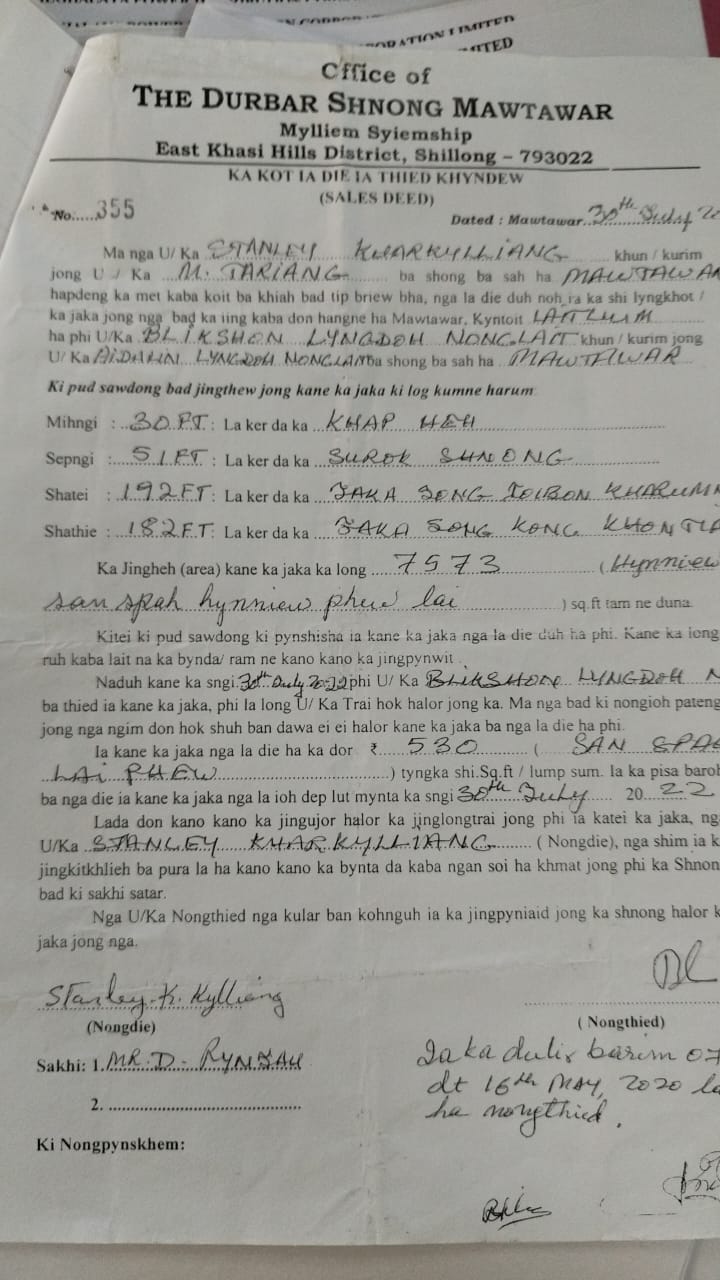 ORATION LIMITED
ITED
Office of
THE DURBAR SHNONG MAWTAWAR
Mylliem Syiemship
East Khasi Hills District, Shillong – 793022
KA KOT IA DIE IA THIED KHYNDEW
(SALES DEED)
No.....355
Dated : Mawtawar 30th July 20
Ma nga U/ Ka STANLEY KHARKYLLIANG khun / kurim
jong U / Ka M. TARIANG ba shong ba sah ha MAWTAWAR
hapdeng ka met kaba koit ba khiah bad tip briew bha, nga la die duh noh ia ka shi lyngkhot /
ka jaka jong nga bad ka iing kaba don hangne ha Mawtawar, Kyntoit LAITLUM
ha phi U/Ka BLIKSHON LYNGDOH NONGLAIT khun / kurim jong
U/ Ka LYNGDOH NONGLAIT ba shong ba sah ha MAWTAWAR
Ki pud sawdong bad jingthew jong kane ka jaka ki log kumne harum
Mihngi : 30 FT : La ker da ka KHAP HEH
Sepngi : 51 FT : La ker da ka SUROK SHNONG
Shatei : 192 FT : La ker da ka JAKA JONG
Shathie : 182 FT : La ker da ka JAKA JONG KONG
Ka Jingheh (area) kane ka jaka ka long 7573 (Hynniew
san spah hynniew phew lai ) sq.ft tam ne duna.
Kitei ki pud sawdong ki pynshisha ia kane ka jaka nga la die duh ha phi. Kane ka long
ruh kaba lait na ka bynda/ ram ne kano kano ka jingpynwit .
Naduh kane ka sngi 30th July 2022 phi U/ Ka BLIKSHON LYNGDOH N
ba thied ia kane ka jaka, phi la long U/ Ka Trai hok halor jong ka. Ma nga bad ki nongioh pateng
jong nga ngim don hok shuh ban dawa ei ei halor kane ka jaka ba nga la die ha phi.
Ia kane ka jaka nga la die ha ka dor ₹ 530 ( SAN SPAH
LAI PHEW ) tyngka shi.Sq.ft / lump sum. Ia ka pisa baroh
ba nga die ia kane ka jaka nga la ioh dep lut mynta ka sngi 30th July 2022
Lada don kano kano ka jingujor halor ka jinglongtrai jong phi ia katei ka jaka, ng
U/Ka STANLEY KHARKYLLIANG ( Nongdie), nga shim ia k
jingkitkhlieh ba pura la ha kano kano ka bynta da kaba ngan soi ha khmat jong phi ka Shnon
bad ki sakhi satar.
Nga U/Ka Nongthied nga kular ban kohnguh ia ka jingpyniaid jong ka shnong halor k
jaka jong nga.
Stanley K. Kylliang
(Nongdie)
BL
( Nongthied)
Sakhi: 1. MR. D. RYNJAH
2.
Jaka dulir barim 07
dt 16th MAY, 2020 la
ha nongthied.
Ki Nongpynskhem: